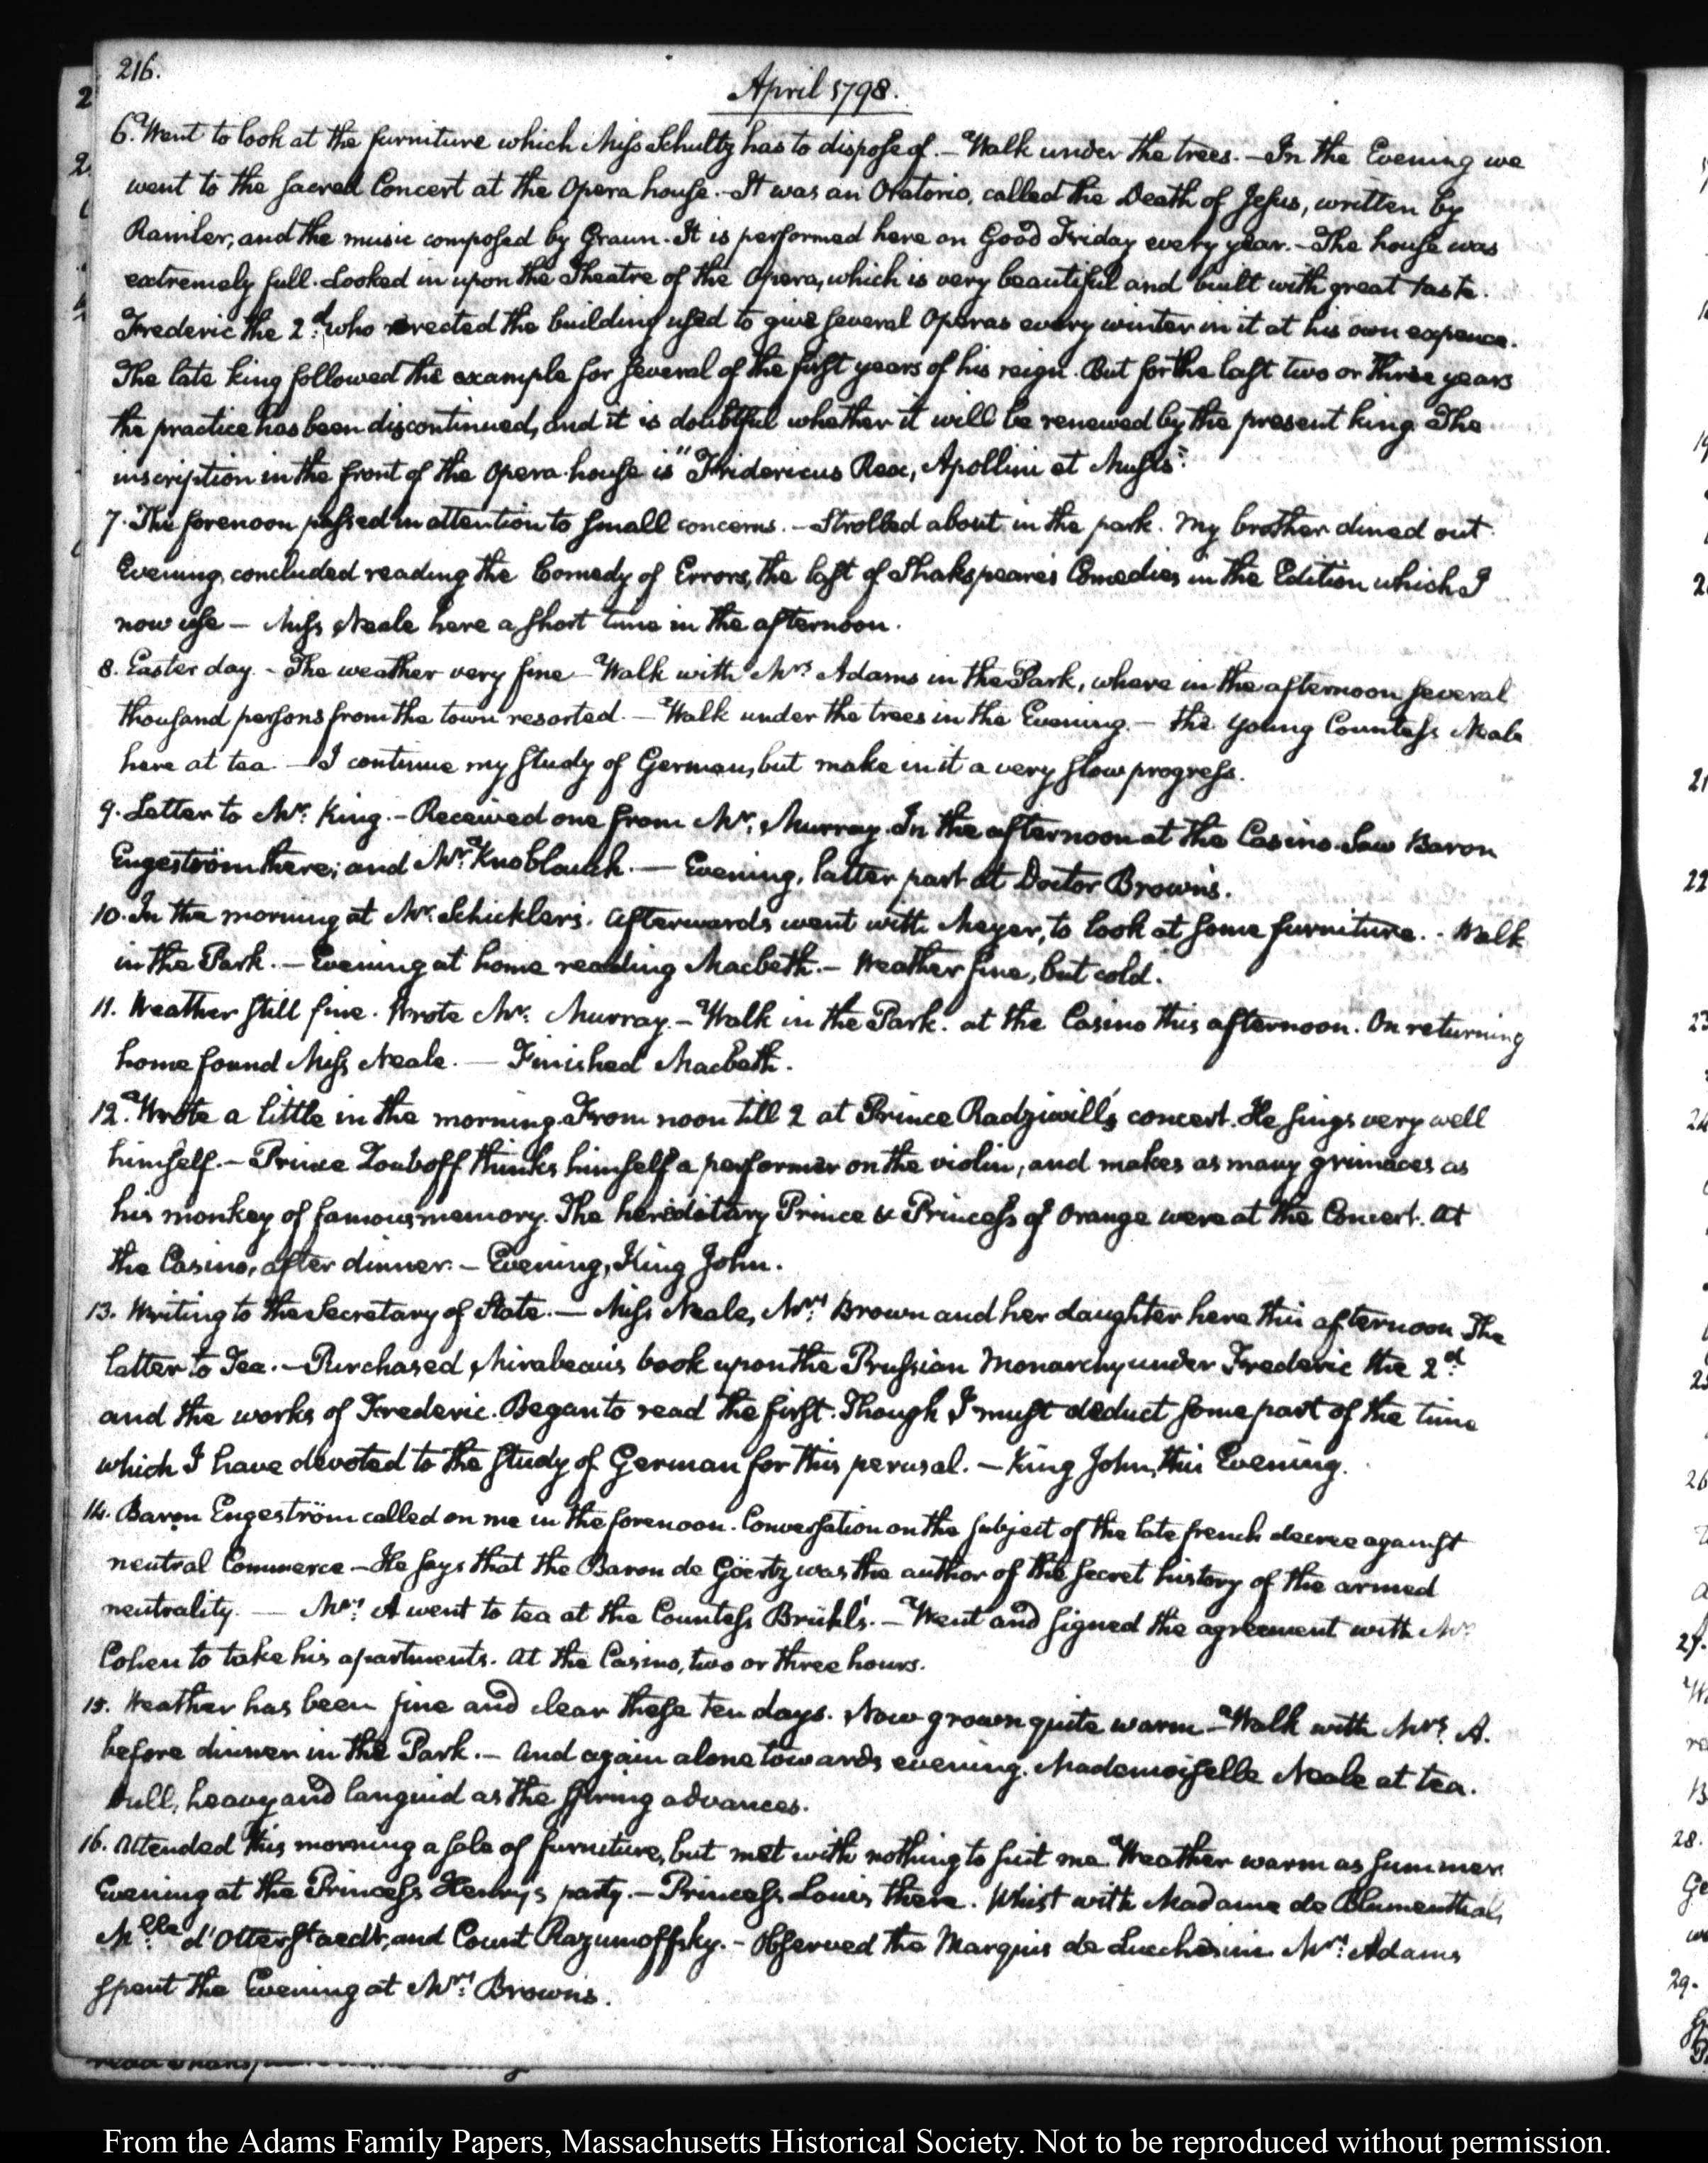 216.
April 1798.
6. Went to look at the furniture which Miss Schultz has to dispose of. — Walk under the trees. — In the Evening we
went to the sacred Concert at the Opera house. — It was an Oratorio, called the Death of Jesus, written by
Ramler, and the music composed by Graun. It is performed here on Good Friday every year. — The house was
extremely full. Looked in upon the Theatre of the Opera, which is very beautiful and built with great taste.
Frederic the 2.d who erected the building used to give several Operas every winter in it at his own expence.
The late king followed the example for several of the first years of his reign. But for the last two or three years
the practice has been discontinued, and it is doubtful whether it will be renewed by the present king. The
inscription in the front of the Opera-house is "Fridericus Rex, Apollini et Musis".
7. The forenoon passed in attention to small concerns. — Strolled about in the park. My brother dined out.
Evening, concluded reading the Comedy of Errors, the last of Shakspeare's Comedies in the Edition which I
now use — Miss Neale here a short time in the afternoon.
8. Easter day. — The weather very fine — Walk with Mrs. Adams in the Park, where in the afternoon several
thousand persons from the town resorted. — Walk under the trees in the Evening. — the young Countess Neale
here at tea — I continue my study of German, but make in it a very slow progress.
9. Letter to Mr. King. — Received one from Mr. Murray. In the afternoon at the Casino. Saw Baron
Engeström there; and Mr. Knoblauch. — Evening, latter part at Doctor Brown's.
10. In the morning at Mr. Schickler's. Afterwards went with Meyer, to look at some furniture. - Walk
in the Park. — Evening at home reading Macbeth. — Weather fine, but cold.
11. Weather still fine. Wrote Mr. Murray. — Walk in the Park. at the Casino this afternoon. On returning
home found Miss Neale. — Finished Macbeth.
12. Wrote a little in the morning. From noon till 2 at Prince Radziwill's concert. He sings very well
himself. — Prince Zouboff thinks himself a performer on the violin, and makes as many grimaces as
his monkey of famous memory. The hereditary Prince & Princess of Orange were at the Concert. At
the Casino, after dinner. — Evening, King John.
13. Writing to the Secretary of State. — Miss Neale, Mrs. Brown and her daughter here this afternoon The
latter to Tea. — Purchased Mirabeau's book upon the Prussian Monarchy under Frederic the 2.d
and the works of Frederic. Began to read the first. Though I must deduct some part of the time
which I have devoted to the study of German for this perusal. — King John, this Evening.
14. Baron Engeström called on me in the forenoon. Conversation on the subject of the late french decree against
neutral Commerce — He says that the Baron de Göertz was the author of the secret history of the armed
neutrality. — Mrs. A went to tea at the Countess Brühl's. — Went and signed the agreement with Mr.
Cohen to take his apartments. At the Casino, two or three hours.
15. Weather has been fine and clear these ten days. Now grown quite warm — Walk with Mrs. A.
before dinner in the Park. — And again alone towards evening. Mademoiselle Neale at tea.
Dull, heavy and languid as the spring advances.
16. Attended this morning a sale of furniture, but met with nothing to suit me. Weather warm as summer.
Evening at the Princess Henry's party. — Princess Louis there. Whist with Madame de Blumenthal,
M.lle d'Otterstaedt, and Count Razumoffsky. — Observed the Marquis de Lucchesini. Mrs. Adams
spent the Evening at Mrs. Brown's.
From the Adams Family Papers, Massachusetts Historical Society. Not to be reproduced without permission.